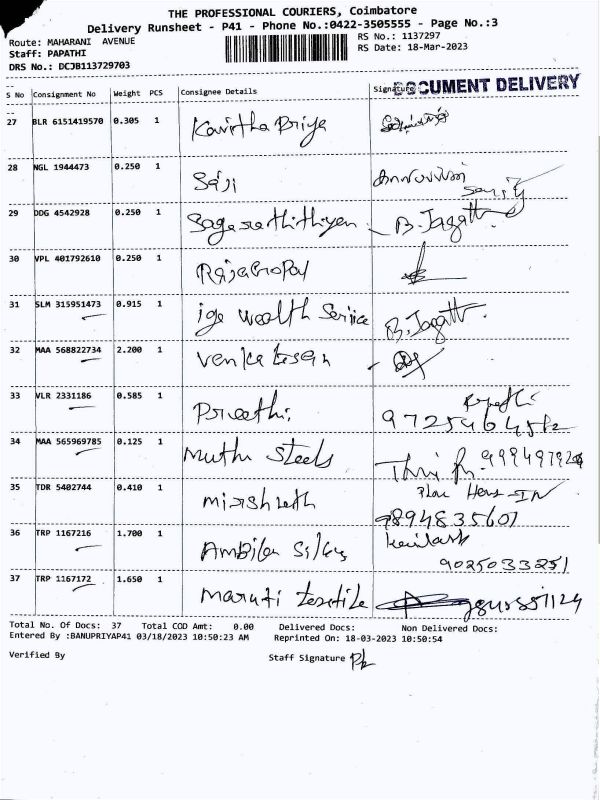 THE PROFESSIONAL COURIERS, Coimbatore
Delivery Runsheet - P41 - Phone No.:0422-3505555 - Page No.:3
Route: MAHARANI AVENUE
RS No.: 1137297
Staff: PAPATHI
RS Date: 18-Mar-2023
DRS No.: DCJB113729703
DOCUMENT DELIVERY
S No Consignment No Weight PCS Consignee Details Signature
27 BLR 6151419570 0.305 1 Kavirtha Priya
28 NGL 1944473 0.250 1 Saji
29 DDG 4542928 0.250 1 B. Jagatt
30 VPL 401792610 0.250 1 RajaGopal
31 SLM 315951473 0.915 1 ige wealth Service B. Jagatt.
32 MAA 568822734 2.200 1 Venkatesan
33 VLR 2331186 0.585 1 Preethi
34 MAA 565969785 0.125 1 Muthu Steels
35 TDR 5402744 0.410 1 9894835601
36 TRP 1167216 1.700 1 Ambika Silks 9025033251
37 TRP 1167172 1.650 1 Maruti textile
Total No. Of Docs: 37 Total COD Amt: 0.00 Delivered Docs: Non Delivered Docs:
Entered By :BANUPRIYAP41 03/18/2023 10:50:23 AM Reprinted On: 18-03-2023 10:50:54
Verified By Staff Signature